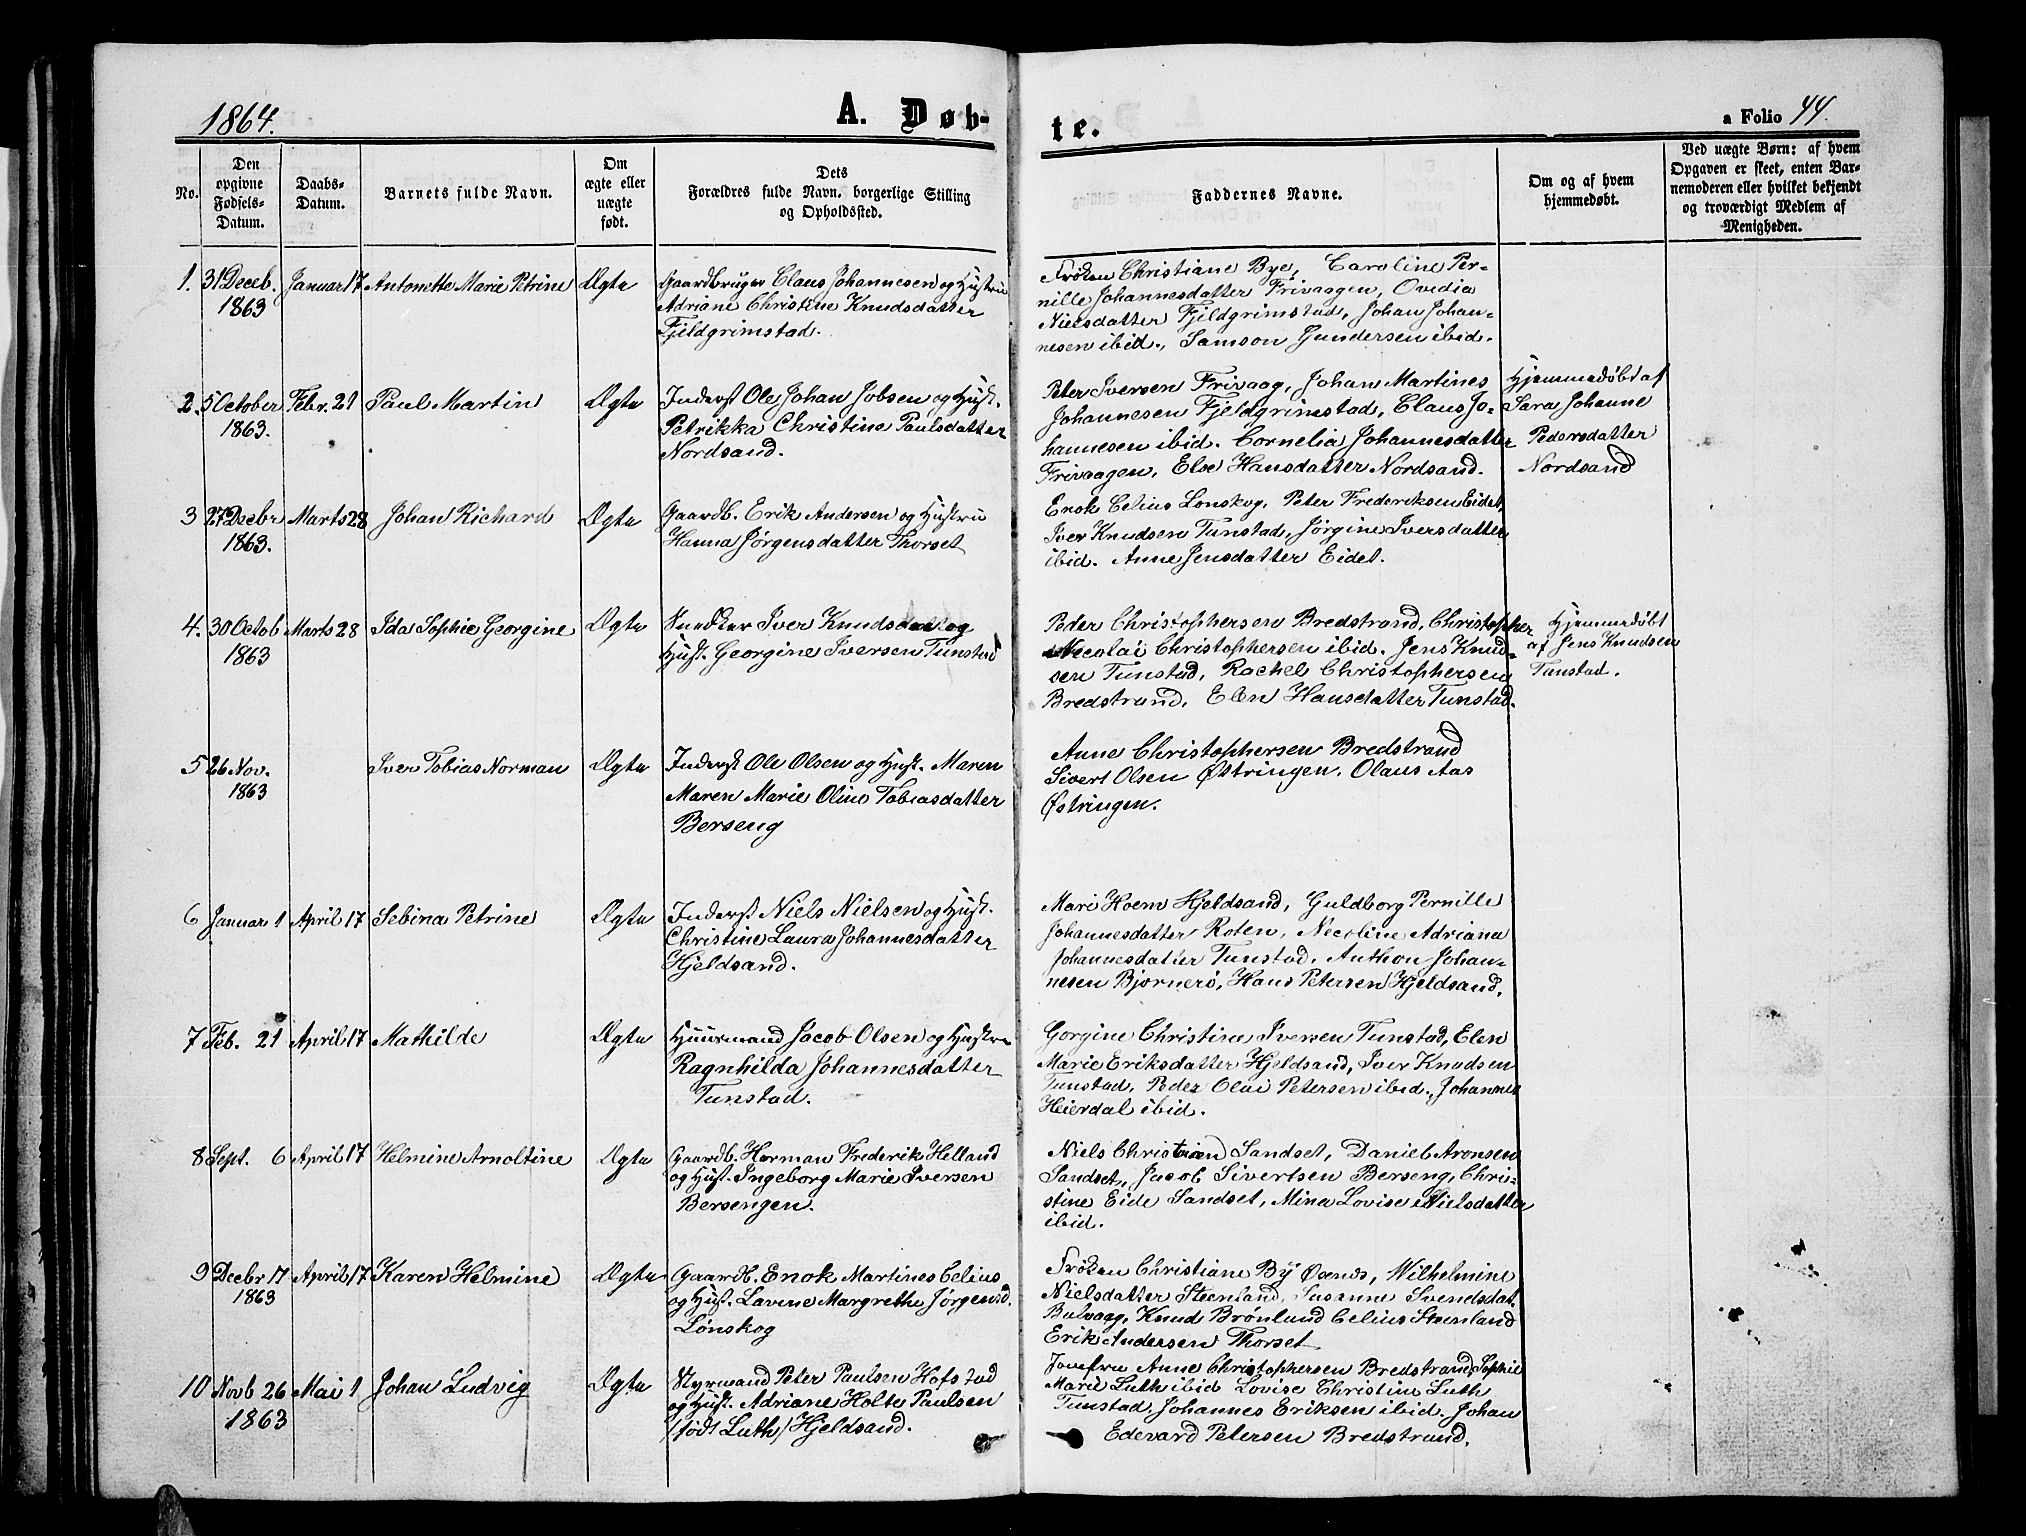 1864.
A. Døb-
te.
a Folio 44.
No.
Den
opgivne
Fødsels-
Datum.
Daabs-
Datum.
Barnets fulde Navn.
Om
ægte eller
uægte
født.
Dets
Forældres fulde Navn, borgerlige Stilling
og Opholdssted.
Faddernes Navne.
Om og af hvem
hjemmedøbt.
Ved uægte Børn: af hvem
Opgaven er skeet, enten Bar-
nemoderen eller hvilket bekjendt
og troværdigt Medlem af
Menigheden.
1. 31 Deceb.
1863
Januar 17
Antonette Marie Petrine
Ægte
Gaardbruger Claus Johannesen og Hustru
Adriane Christine Knudsdatter
Fjeldgrimstad.
Frøken Christiane Bye, Caroline Per-
nille Johannesdatter Frivaagen, Ovedia
Nielsdatter Fjeldgrimstad, Johan Johan-
nesen ibid., Samson Gundersen ibid.
2. 5 October
1863.
Febr. 21
Paul Martin
Ægte
Inderst Ole Johan Jobsen og Hust.
Petrikka Christine Paulsdatter
Nordsand.
Peter Iversen Frivaag, Johan Martines
Johannesen Fjeldgrimstad, Claus Jo-
hannesen ibid. Cornelia Johannesdatter
Frivaagen, Else Hansdatter Nordsand.
Hjemmedøbt af
Sara Johanne
Pedersdatter
Nordsand
3 27 Decbr
1863.
Marts 28
Johan Richard
Ægte
Gaardb. Erik Andersen og Hustru
Hanna Jørgensdatter Thorset
Enok Celius Lonskog, Peter Frederiksen Eidet,
Iver Knudsen Tunstad, Jørgine Iversdatter
ibid. Anne Jensdatter Eidet.
4. 30 Octob
1863
Marts 28
Ida Sophie Georgine
Ægte
Snedker Iver Knudsen og
Hust. Georgine Iversen Tunstad
Peder Christophersen Bredstrand, Christopher
Nicolai Christophersen ibid. Jens Knud-
sen Tunstad, Rachel Christophersen
Bredstrand, Elen Hansdatter Tunstad.
Hjemmedøbt
af Jens Knudsen
Tunstad.
5 26 Nov.
1863
Iver Tobias Norman
Ægte
Inderst Ole Olsen og Hust. Maren
Maren Marie Oline Tobiasdatter
Berseng
Anne Christophersen Bredstrand
Sivert Olsen Østringen. Olaus Aas
Østringen.
6 Januar 1
April 17
Sebina Petrine
Ægte
Inderst Niels Nielsen og Hust.
Christine Laura Johannesdatter
Hjeldsand.
Mari Hoem Hjeldsand, Guldborg Pernille
Johannesdatter Roten, Necoline Adriana
Johannesdatter Tunstad. Anthon Johan-
nesen Bjornerø, Hans Petersen Hjeldsand.
7 Feb. 21
April 17
Mathilde
Ægte
Huusmand Jacob Olsen og Hustru
Ragnhilda Johannesdatter
Tunstad.
Gorgine Christine Iversen Tunstad, Elen
Marie Eriksdatter Hjeldsand, Iver Knudsen
Tunstad, Peder Olai Petersen ibid., Johannes
Heierdal ibid.
8 Sept. 6
April 17
Helmine Arnoltine
Ægte
Gaardb. Herman Frederik Helland
og Hust. Ingeborg Marie Iversen
Bersengen.
Niels Christian Sandset, Daniel Aronsen
Sandset, Jacob Sivertsen Berseng, Chri-
stine Eide Sandset, Mina Lovise Nielsdatter
ibid.
9 Decbr 17
1863
April 17
Karen Helmine
Ægte
Gaardb. Enok Martines Celius
og Hust. Lavine Margrethe Jørgensd.
Lønskog
Frøken Christiane By Øxnes, Wilhelmine
Nielsdatter Steenland, Susanne Svendsdat.
Bulvaag, Knud Brønlund Celius Steenland
Erik Andersen Thorset
10 Novb 26
1863
Mai 1
Johan Ludvig
Ægte
Styrmand Peter Paulsen Hofstad
og Hust. Adriane Holte Paulsen
/født Luth/ Hjeldsand.
Jomfru Anne Christophersen Bredstrand, Sophie
Marie Luth ibid Lovise Christine Luth
Tunstad. Johannes Eriksen ibid. Johan
Edevard Petersen Bredstrand.